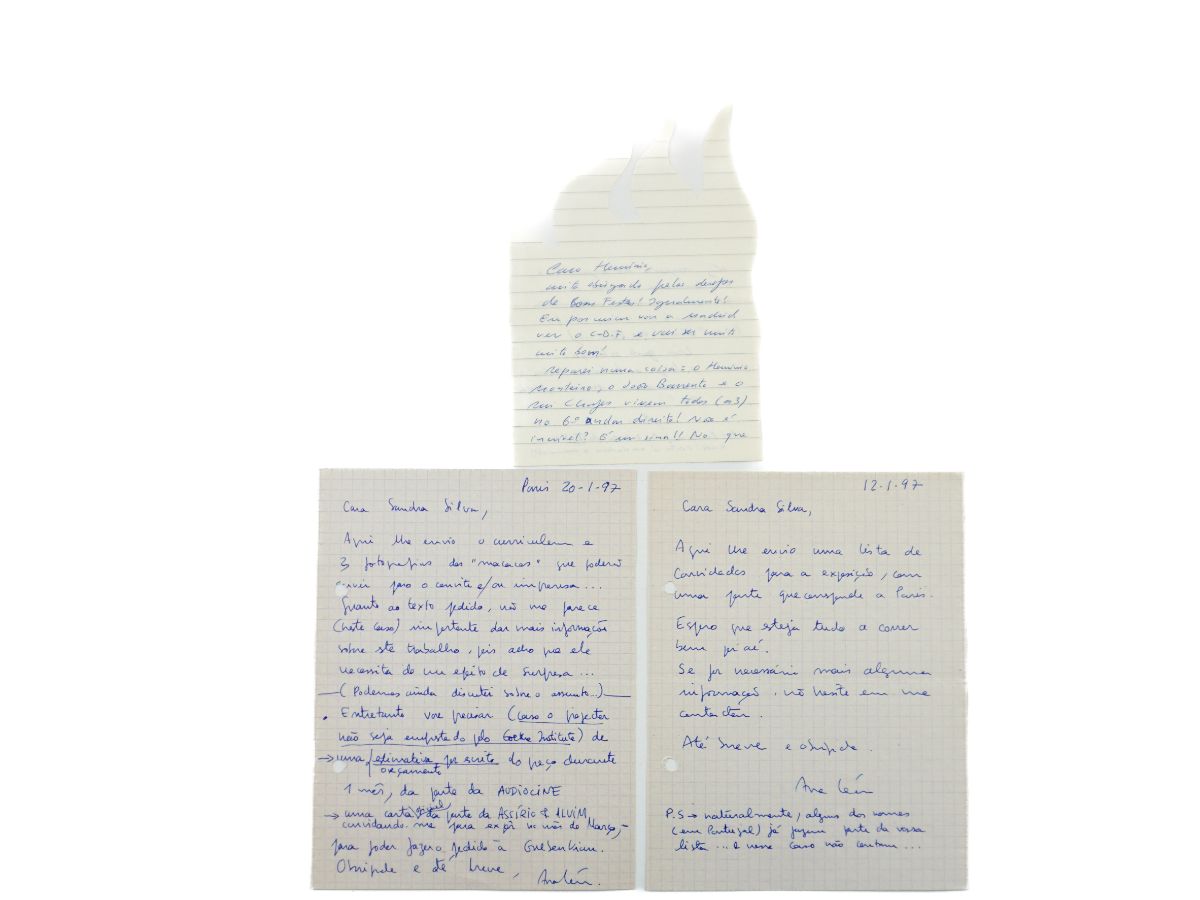 Caro Hermínio,
muito obrigado pelos desejos
de Boas Festas! Igualmente!
Eu por mim vou a Madrid
ver o C.D.F. e vai ser muito
muito bom!
reparei numa coisa: o Hermínio
Monteiro, o João Barrento e o
Rui Chafes vivem todos (os 3)
no 6º andar direito! Não é
incrível? É um sinal!! No que
Paris 20-1-97
Cara Sandra Silva,
Aqui lhe envio o curriculum e
3 fotografias dos "macacos" que poderá
servir para o convite e/ou imprensa...
Quanto ao texto pedido, não me parece
(neste caso) importante dar mais informações
sobre este trabalho, pois acho que ele
necessita de um efeito de surpresa...
(Podemos ainda discutir sobre o assunto...)
. Entretanto vou precisar (caso o projector
não seja emprestado pelo Goethe Institute) de
→ uma estimativa por escrito do preço durante
orçamento
1 mês, da parte da AUDIOCINE
→ uma carta oficial da parte da ASSÍRIO & ALVIM
convidando-me para expôr no mês de Março,-
para poder fazer o pedido à Gulbenkian.
Obrigada e até breve, Ana León.
12-1-97
Cara Sandra Silva,
Aqui lhe envio uma lista de
Convidados para a exposição, com
uma parte que corresponde a Paris.
Espero que esteja tudo a correr
bem p'aí.
Se for necessário mais alguma
informação, não hesite em me
contactar.
Até breve e obrigada.
Ana León
P.S → naturalmente, alguns dos nomes
(em Portugal) já fazem parte da vossa
lista ... e nesse caso não contam...